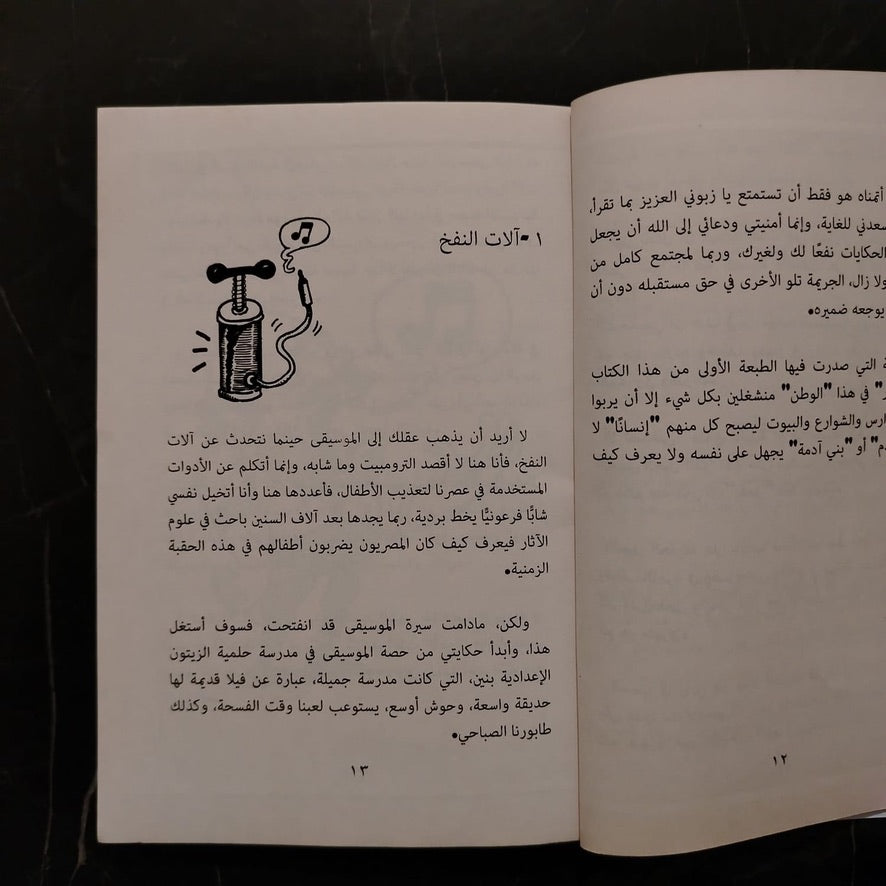 أتمناه هو فقط أن تستمتع يا زبوني العزيز بما تقرأ،
للغاية، وإنما أمنيتي ودعائي إلى الله أن يجعل
الحكايات نفعًا لك ولغيرك، وربما لمجتمع كامل من
ولا زال، الجريمة تلو الأخرى في حق مستقبله دون أن
يوجعه ضميره.
التي صدرت فيها الطبعة الأولى من هذا الكتاب
في هذا "الوطن" منشغلين بكل شيء إلا أن يربوا
والشوارع والبيوت ليصبح كل منهم "إنسانًا" لا
أو "بني آدمة" يجهل على نفسه ولا يعرف كيف
١٢
١ •آلات النفخ
لا أريد أن يذهب عقلك إلى الموسيقى حينما نتحدث عن آلات
النفخ، فأنا هنا لا أقصد الترومبيت وما شابه، وإنما أتكلم عن الأدوات
المستخدمة في عصرنا لتعذيب الأطفال، فأعددها هنا وأنا أتخيل نفسي
شابًّا فرعونيًّا يخط بردية، ربما يجدها بعد آلاف السنين باحث في علوم
الآثار فيعرف كيف كان المصريون يضربون أطفالهم في هذه الحقبة
الزمنية.
ولكن، مادامت سيرة الموسيقى قد انفتحت، فسوف أستغل
هذا، وأبدأ حكايتي من حصة الموسيقى في مدرسة حلمية الزيتون
الإعدادية بنين، التي كانت مدرسة جميلة، عبارة عن فيلا قديمة لها
حديقة واسعة، وحوش أوسع، يستوعب لعبنا وقت الفسحة، وكذلك
طابورنا الصباحي.
١٣